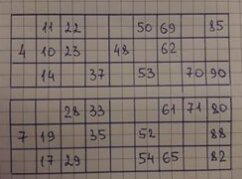 11 22 50 69 85
4 10 23 48 62
14 37 53 70 90
28 33 61 71 80
7 19 35 52 88
17 29 54 65 82